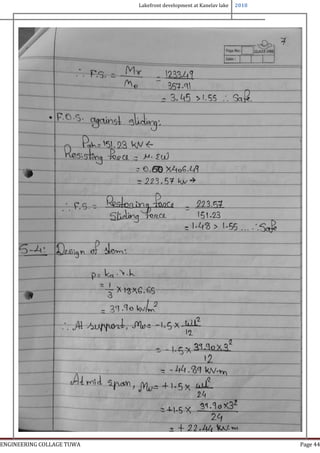 Lakefront development at Kanelav lake 2018
7
Page No.:
Date:
∴ F.S. = Mr / Mo = 1233.49 / 357.91
= 3.45 > 1.55 ∴ Safe
• F.O.S. against sliding:
Pah = 151.23 kN ←
Resisting force = μ.ΣW
= 0.50 × 406.49
= 223.57 kN →
∴ F.S. = Restoring force / Sliding force = 223.57 / 151.23
= 1.48 > 1.55 ... ∴ Safe
S-4: Design of stem:
p = ka.γ.h
= 1/3 × 18 × 6.65
= 39.90 kN/m²
∴ At support, Mu = -1.5 × wl²/12
= -1.5 × 39.90×3²/12
= -44.89 kN.m
At mid span, Mu = +1.5 × wl²/24
= +1.5 × 39.90×3²/24
= + 22.44 kN.m
ENGINEERING COLLAGE TUWA Page 44